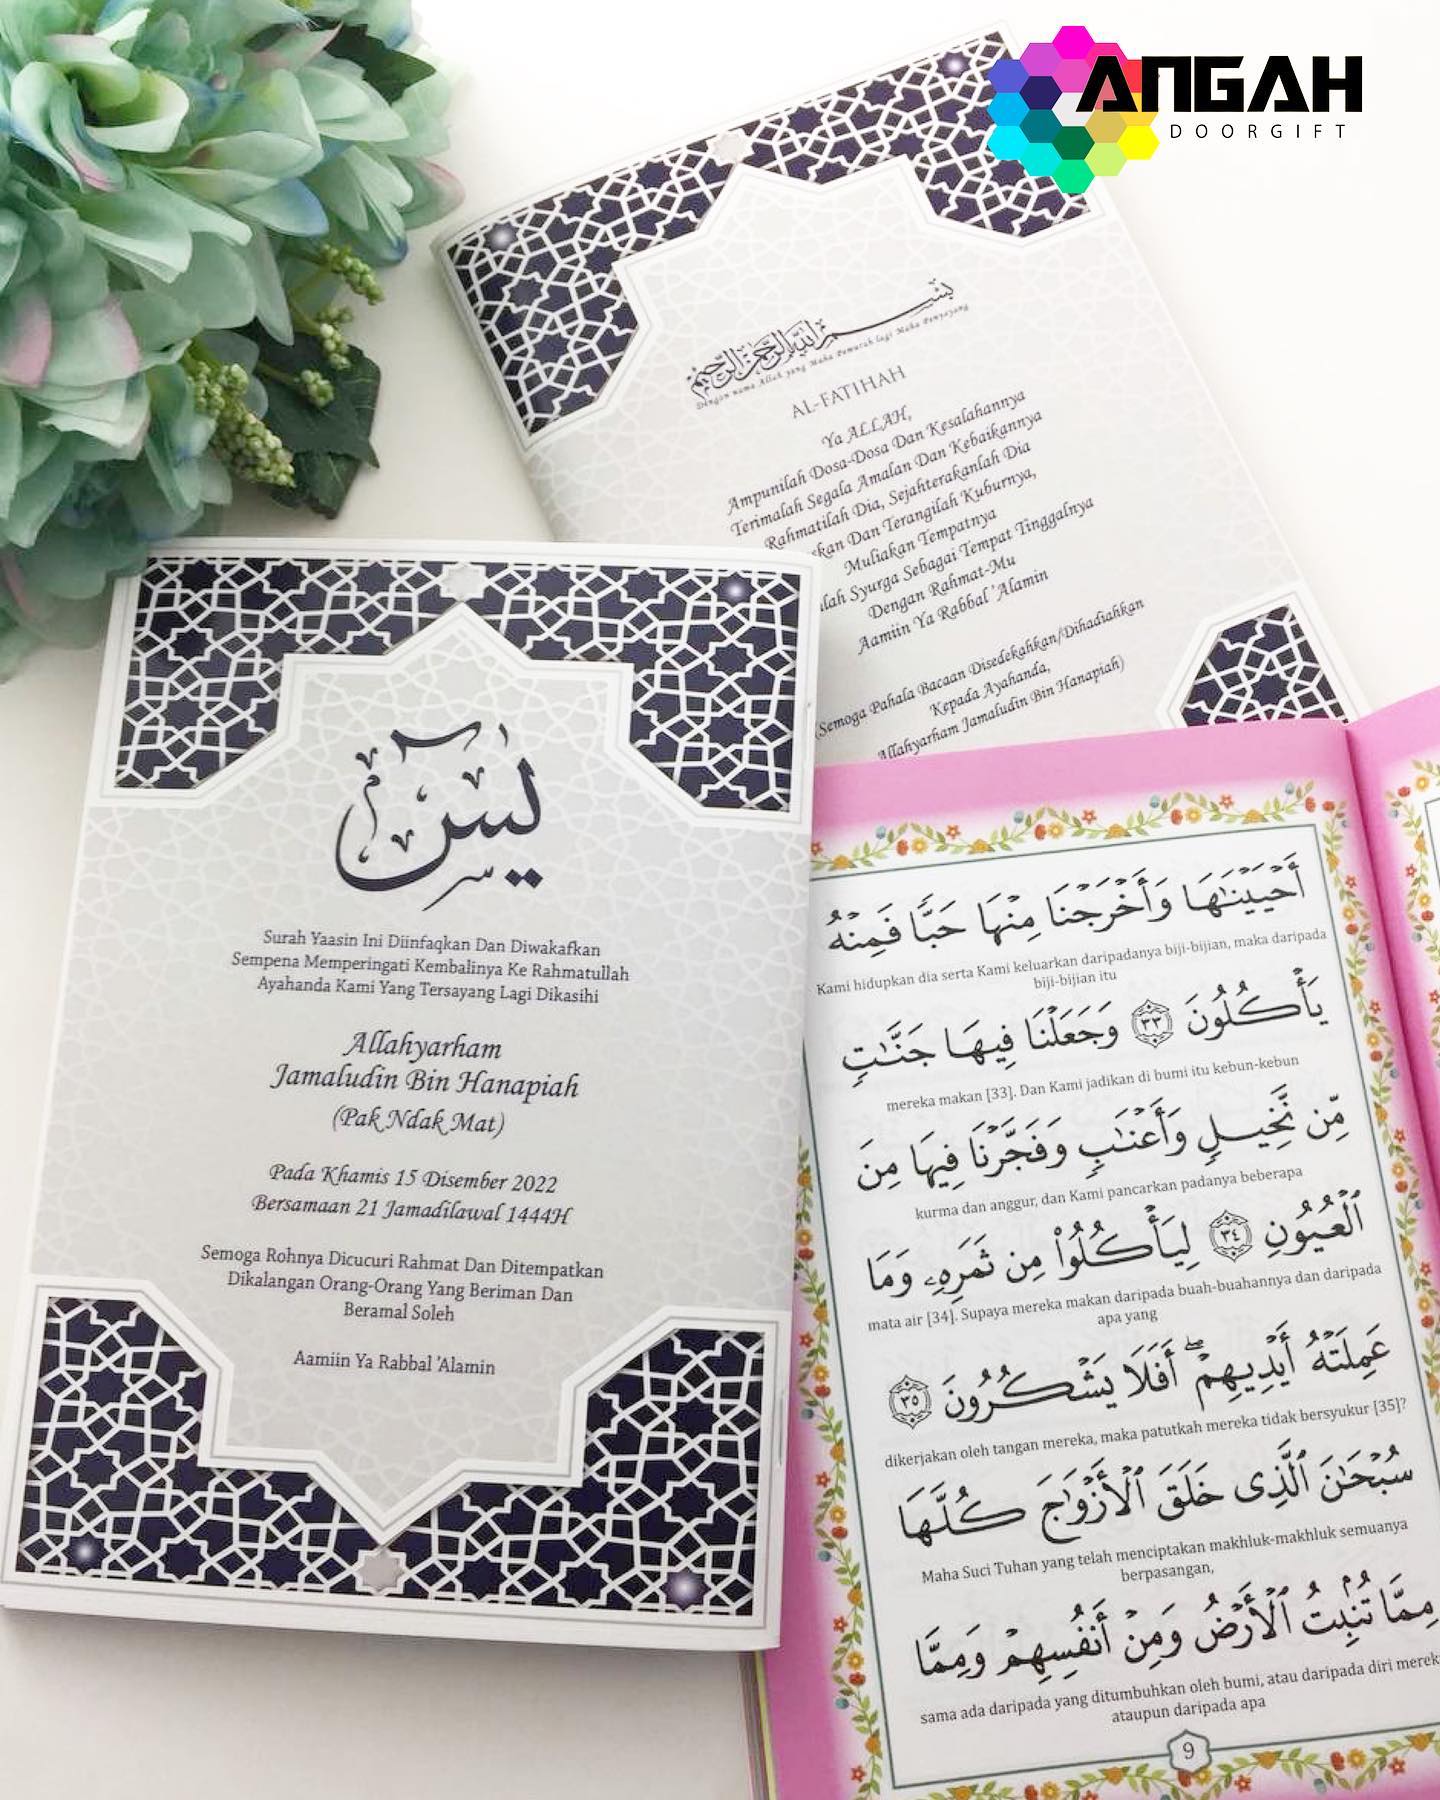 ANGAH
DOORGIFT
بسم الله الرحمن الرحيم
Dengan nama Allah yang Maha Pemurah lagi Maha Penyayang
AL-FATIHAH
Ya ALLAH,
Ampunilah Dosa-Dosa Dan Kesalahannya
Terimalah Segala Amalan Dan Kebaikannya
Rahmatilah Dia, Sejahterakanlah Dia
Dan Terangilah Kuburnya,
Muliakan Tempatnya
Syurga Sebagai Tempat Tinggalnya
Dengan Rahmat-Mu
Aamiin Ya Rabbal 'Alamin
(Semoga Pahala Bacaan Disedekahkan/Dihadiahkan
Kepada Ayahanda,
Allahyarham Jamaludin Bin Hanapiah)
يس
Surah Yaasin Ini Diinfaqkan Dan Diwakafkan
Sempena Memperingati Kembalinya Ke Rahmatullah
Ayahanda Kami Yang Tersayang Lagi Dikasihi
Allahyarham
Jamaludin Bin Hanapiah
(Pak Ndak Mat)
Pada Khamis 15 Disember 2022
Bersamaan 21 Jamadilawal 1444H
Semoga Rohnya Dicucuri Rahmat Dan Ditempatkan
Dikalangan Orang-Orang Yang Beriman Dan
Beramal Soleh
Aamiin Ya Rabbal 'Alamin
أَحْيَيْنَٰهَا وَأَخْرَجْنَا مِنْهَا حَبًّا فَمِنْهُ
Kami hidupkan dia serta Kami keluarkan daripadanya biji-bijian, maka daripada
biji-bijian itu
يَأْكُلُونَ ٣٣ وَجَعَلْنَا فِيهَا جَنَّٰتٍ
mereka makan [33]. Dan Kami jadikan di bumi itu kebun-kebun
مِّن نَّخِيلٍ وَأَعْنَٰبٍ وَفَجَّرْنَا فِيهَا مِنَ
kurma dan anggur, dan Kami pancarkan padanya beberapa
ٱلْعُيُونِ ٣٤ لِيَأْكُلُوا۟ مِن ثَمَرِهِۦ وَمَا
mata air [34]. Supaya mereka makan daripada buah-buahannya dan daripada
apa yang
عَمِلَتْهُ أَيْدِيهِمْ ۖ أَفَلَا يَشْكُرُونَ ٣٥
dikerjakan oleh tangan mereka, maka patutkah mereka tidak bersyukur [35]?
سُبْحَٰنَ ٱلَّذِى خَلَقَ ٱلْأَزْوَٰجَ كُلَّهَا
Maha Suci Tuhan yang telah menciptakan makhluk-makhluk semuanya
berpasangan,
مِمَّا تُنۢبِتُ ٱلْأَرْضُ وَمِنْ أَنفُسِهِمْ وَمِمَّا
sama ada daripada yang ditumbuhkan oleh bumi, atau daripada diri
ataupun daripada apa
9